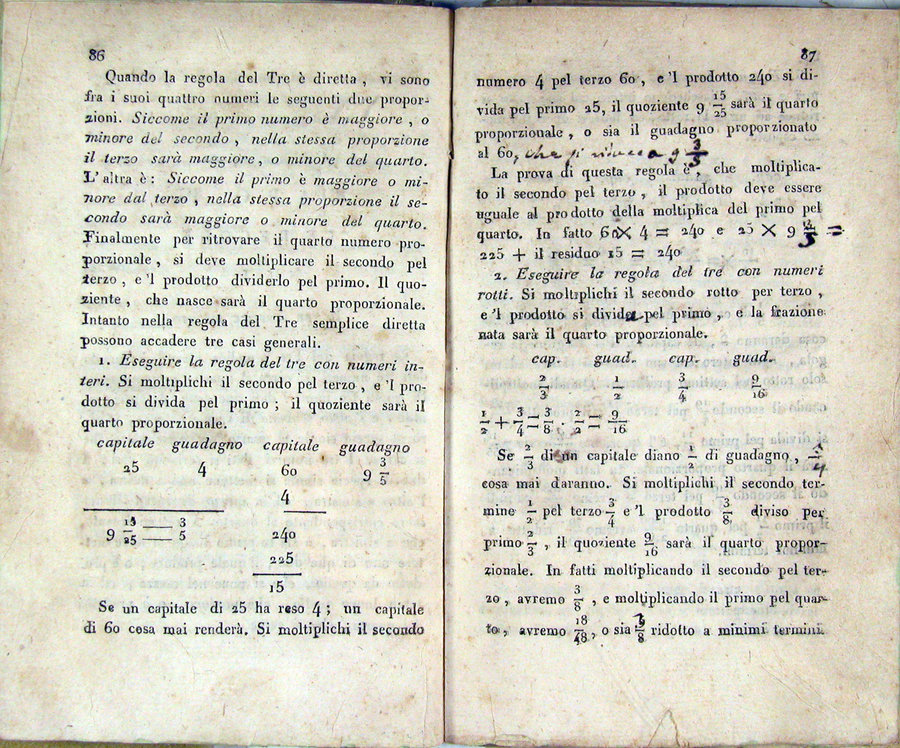 86
Quando la regola del Tre è diretta , vi sono
fra i suoi quattro numeri le seguenti due propor-
zioni. Siccome il primo numero è maggiore , o
minore del secondo , nella stessa proporzione
il terzo sarà maggiore, o minore del quarto.
L'altra è : Siccome il primo è maggiore o mi-
nore dal terzo , nella stessa proporzione il se-
condo sarà maggiore o minore del quarto.
Finalmente per ritrovare il quarto numero pro-
porzionale , si deve moltiplicare il secondo pel
terzo , e 'l prodotto dividerlo pel primo. Il quo-
ziente , che nasce sarà il quarto proporzionale.
Intanto nella regola del Tre semplice diretta
possono accadere tre casi generali.
1. Eseguire la regola del tre con numeri in-
teri. Si moltiplichi il secondo pel terzo , e 'l pro-
dotto si divida pel primo ; il quoziente sarà il
quarto proporzionale.
capitale guadagno capitale guadagno
25 4 60 9 3/5
4
9 15/25 — 3/5 240
225
15
Se un capitale di 25 ha reso 4 ; un capitale
di 60 cosa mai renderà. Si moltiplichi il secondo
87
numero 4 pel terzo 60 , e 'l prodotto 240 si di-
vida pel primo 25, il quoziente 9 15/25 sarà il quarto
proporzionale , o sia il guadagno proporzionato
al 60, che 9 3/5
La prova di questa regola è , che moltiplica-
to il secondo pel terzo , il prodotto deve essere
uguale al prodotto della moltiplica del primo pel
quarto. In fatto 60 X 4 = 240 e 25 X 9 =
225 + il residuo 15 = 240
2. Eseguire la regola del tre con numeri
rotti. Si moltiplichi il secondo rotto per terzo ,
e 'l prodotto si divida pel primo , e la frazione
nata sarà il quarto proporzionale.
cap. guad. cap. guad.
2/3 1/2 3/4 9/16
1/2 + 3/4 = 3/8 . 2/3 = 9/16
Se 2/3 di un capitale diano 1/2 di guadagno ,
cosa mai daranno. Si moltiplichi il secondo ter-
mine 1/2 pel terzo 3/4 e 'l prodotto 3/8 diviso per
primo 2/3 , il quoziente 9/16 sarà il quarto propor-
zionale. In fatti moltiplicando il secondo pel ter-
zo , avremo 3/8 , e moltiplicando il primo pel quar-
to , avremo 18/48 , o sia 3/8 ridotto a minimi termini